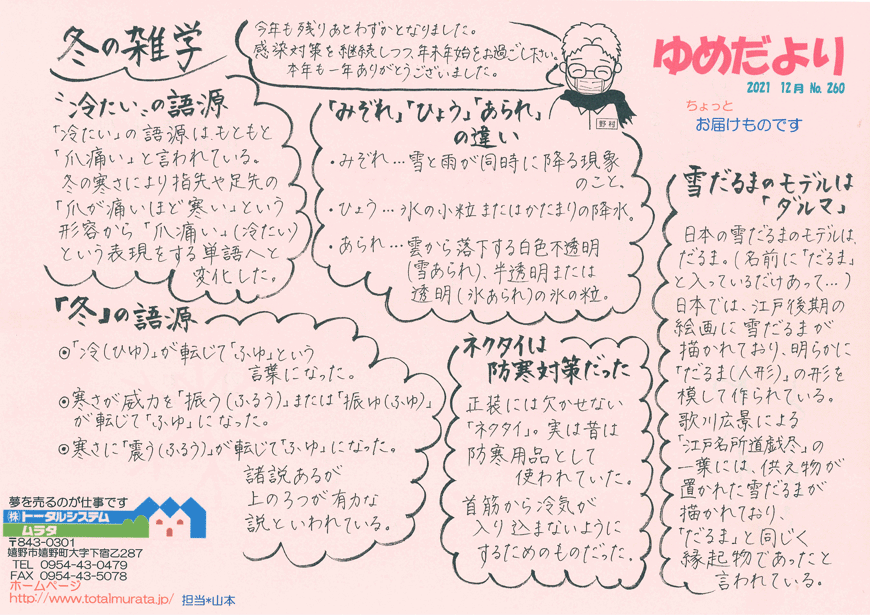 冬の雑学
今年も残りあとわずかとなりました。
感染対策を継続しつつ、年末年始をお過ごし下さい。
本年も一年ありがとうございました。
野村
ゆめだより
2021 12月 No. 260
ちょっと
お届けものです
"冷たい"の語源
「冷たい」の語源は、もともと
「爪痛い」と言われている。
冬の寒さにより指先や足先の
「爪が痛いほど寒い」という
形容から「爪痛い」(冷たい)
という表現をする単語へと
変化した。
「みぞれ」「ひょう」「あられ」
の違い
・みぞれ…雪と雨が同時に降る現象
のこと。
・ひょう…氷の小粒またはかたまりの降水。
・あられ…雲から落下する白色不透明
(雪あられ)、半透明または
透明(氷あられ)の氷の粒。
雪だるまのモデルは
「ダルマ」
日本の雪だるまのモデルは、
だるま。(名前に「だるま」
と入っているだけあって…)
日本では、江戸後期の
絵画に雪だるまが
描かれており、明らかに
「だるま(人形)」の形を
模して作られている。
歌川広景による
「江戸名所道戯尽」の
一葉には、供え物が
置かれた雪だるまが
描かれており、
「だるま」と同じく
縁起物であったと
言われている。
「冬」の語源
◎「冷(ひゆ)」が転じて「ふゆ」という
言葉になった。
◎寒さが威力を「振う(ふるう)」または「振ゆ(ふゆ)」
が転じて「ふゆ」になった。
◎寒さに「震う(ふるう)」が転じて「ふゆ」になった。
諸説あるが
上の3つが有力な
説といわれている。
ネクタイは
防寒対策だった
正装には欠かせない
「ネクタイ」。実は昔は
防寒用品として
使われていた。
首筋から冷気が
入り込まないように
するためのものだった。
夢を売るのが仕事です
㈱トータルシステム
ムラタ
〒843-0301
嬉野市嬉野町大字下宿乙287
TEL 0954-43-0479
FAX 0954-43-5078
ホームページ
http://www.totalmurata.jp/ 担当*山本